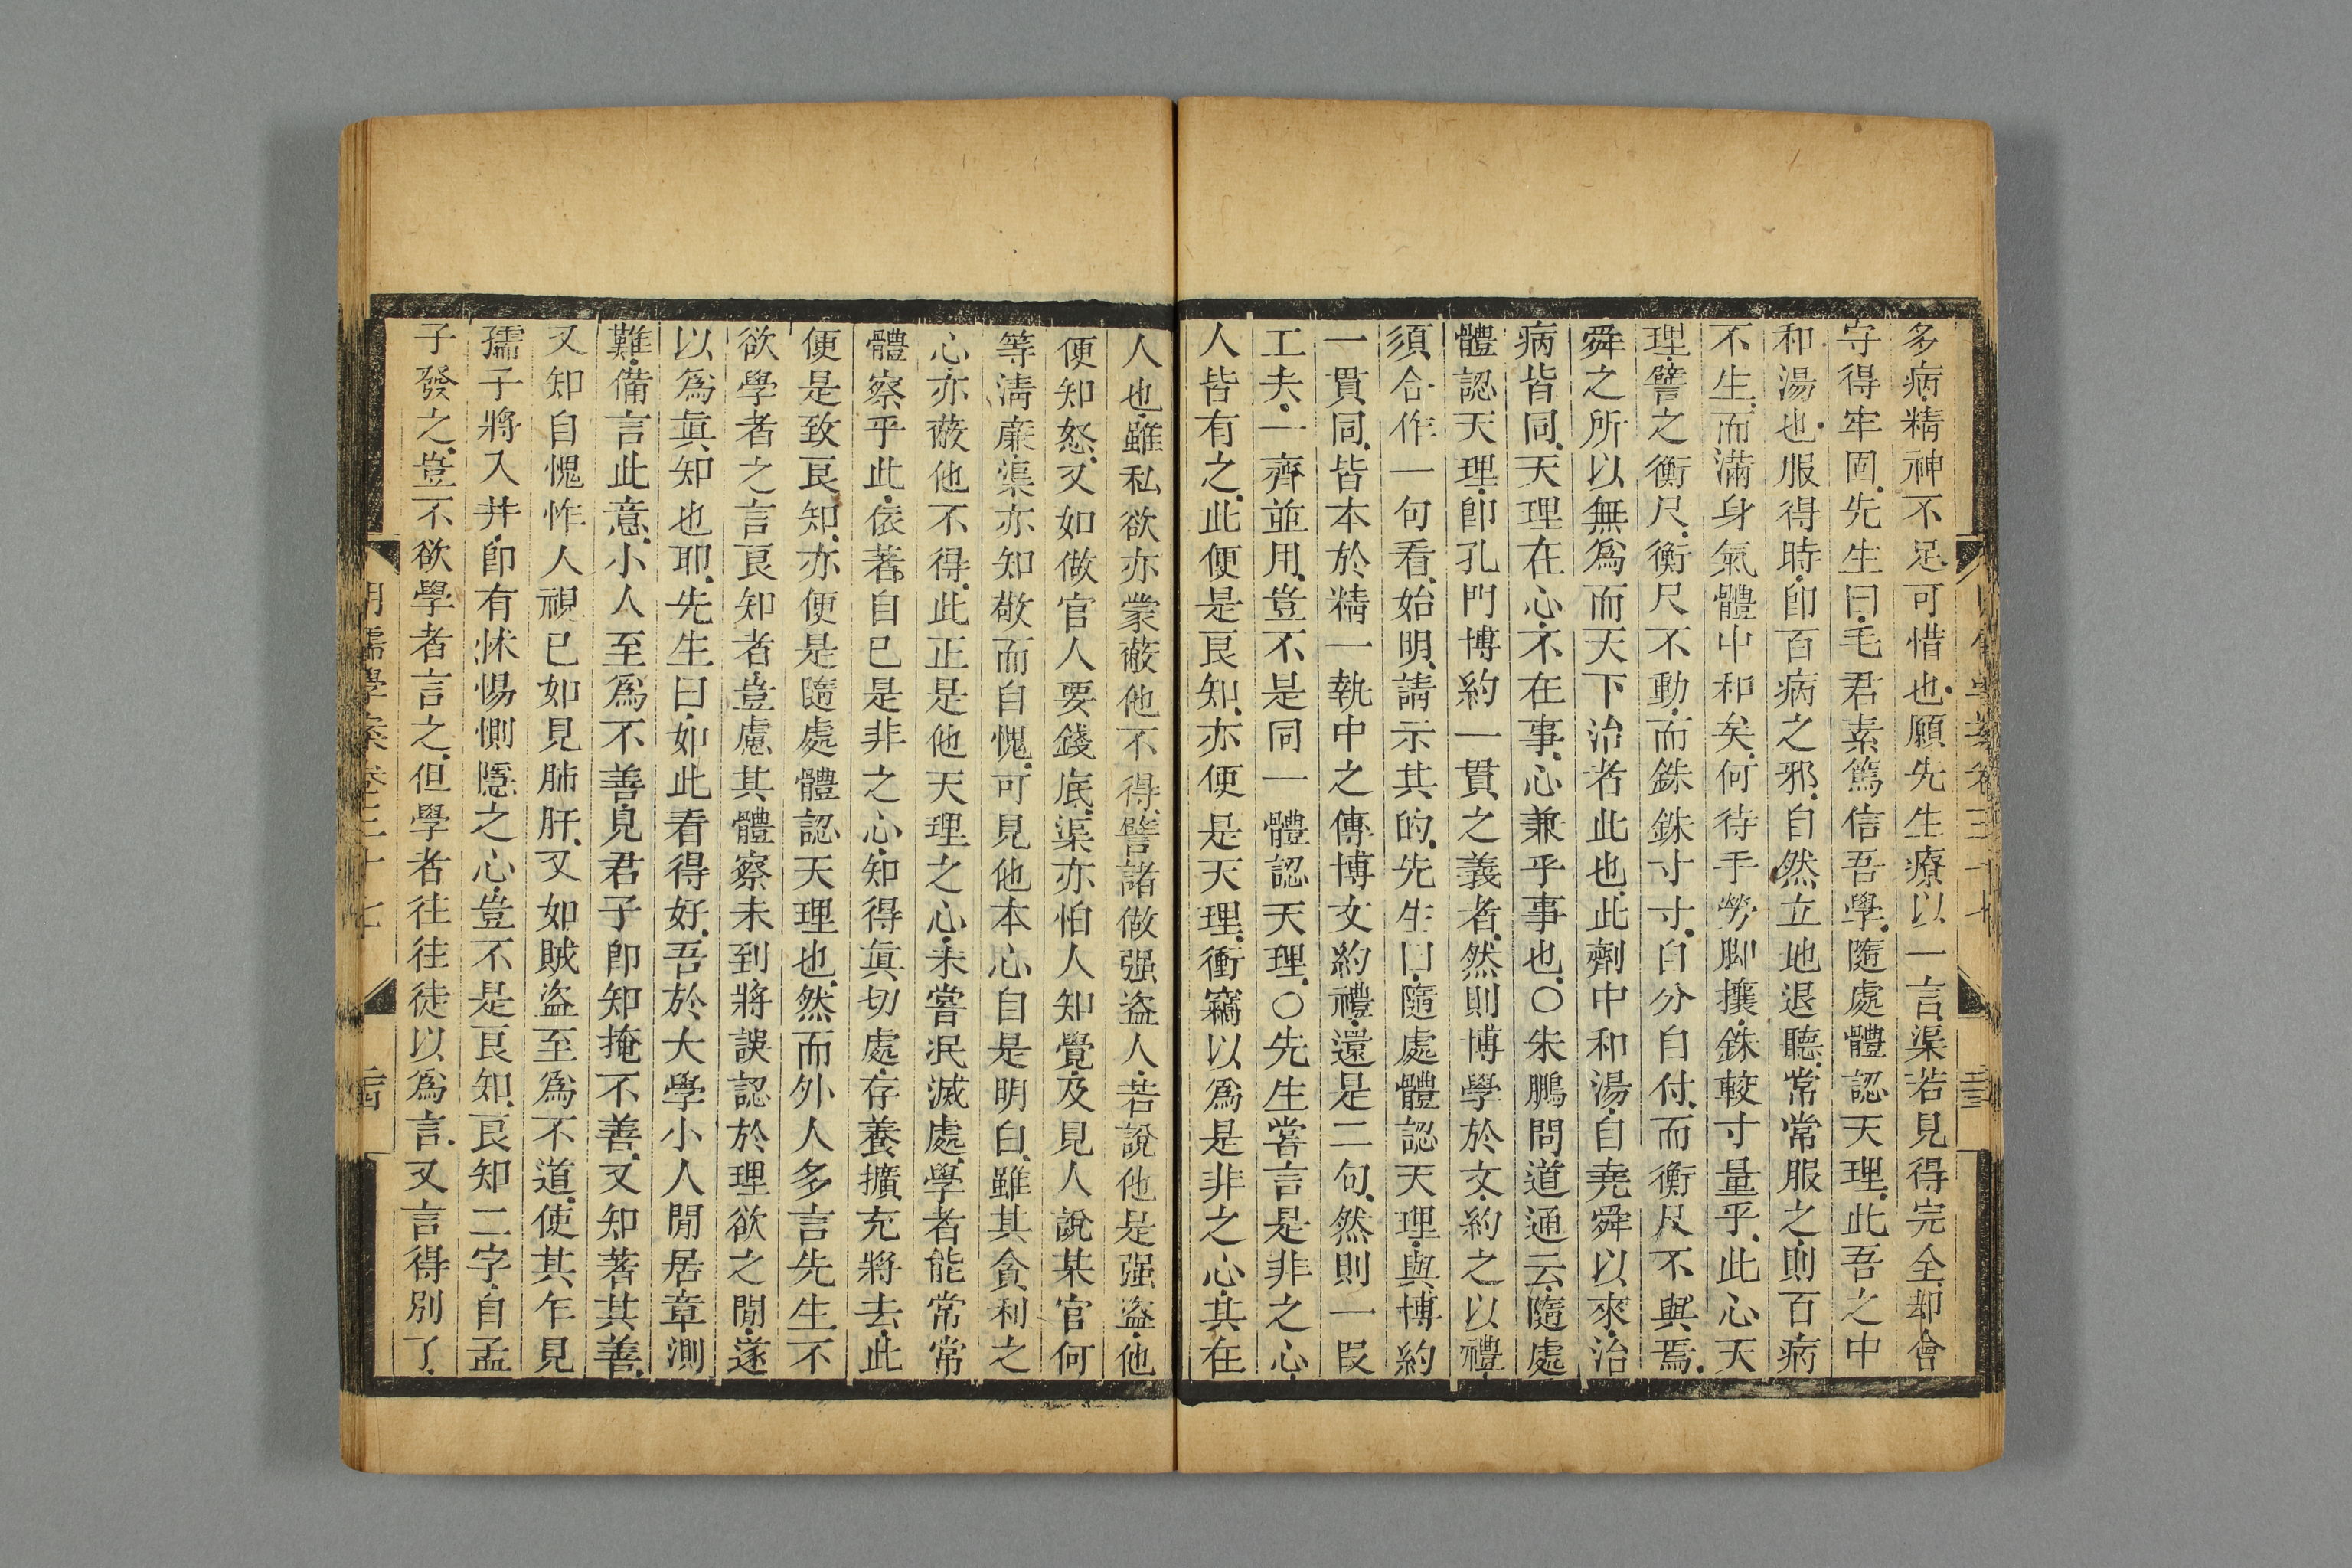 多病精神不足可惜也願先生療以一言渠若見得完全却會
守得牢固先生曰毛君素篤信吾學隨處體認天理此吾之中
和湯也服得時卽百病之邪自然立地退聽常常服之則百病
不生而滿身氣體中和矣何待手勞脚攘銖較寸量乎此心天
理譬之衡尺衡尺不動而銖銖寸寸自分自付而衡尺不與焉
舜之所以無爲而天下治者此也此劑中和湯自堯舜以來治
病皆同天理在心不在事心兼乎事也○朱鵬問道通云隨處
體認天理卽孔門博約一貫之義者然則博學於文約之以禮
須合作一句看始明請示其的先生曰隨處體認天理與博約
一貫同皆本於精一執中之傳博文約禮還是二句然則一段
工夫一齊並用豈不是同一體認天理○先生嘗言是非之心
人皆有之此便是良知亦便是天理衝竊以爲是非之心其在
人也雖私欲亦蒙蔽他不得譬諸做强盜人若說他是强盜他
便知怒又如做官人要錢底渠亦怕人知覺及見人說某官何
等淸廉渠亦知敬而自愧可見他本心自是明白雖其貪利之
心亦蔽他不得此正是他天理之心未嘗泯滅處學者能常常
體察乎此依著自己是非之心知得眞切處存養擴充將去此
便是致良知亦便是隨處體認天理也然而外人多言先生不
欲學者之言良知者豈慮其體察未到將誤認於理欲之閒遂
以爲眞知也耶先生曰如此看得好吾於大學小人閒居章測
難備言此意小人至爲不善見君子卽知掩不善又知著其善
又知自愧怍人視已如見肺肝又如賊盜至爲不道使其乍見
孺子將入井卽有怵惕惻隱之心豈不是良知良知二字自孟
子發之豈不欲學者言之但學者往往徒以爲言又言得別了
明儒學案卷三十七